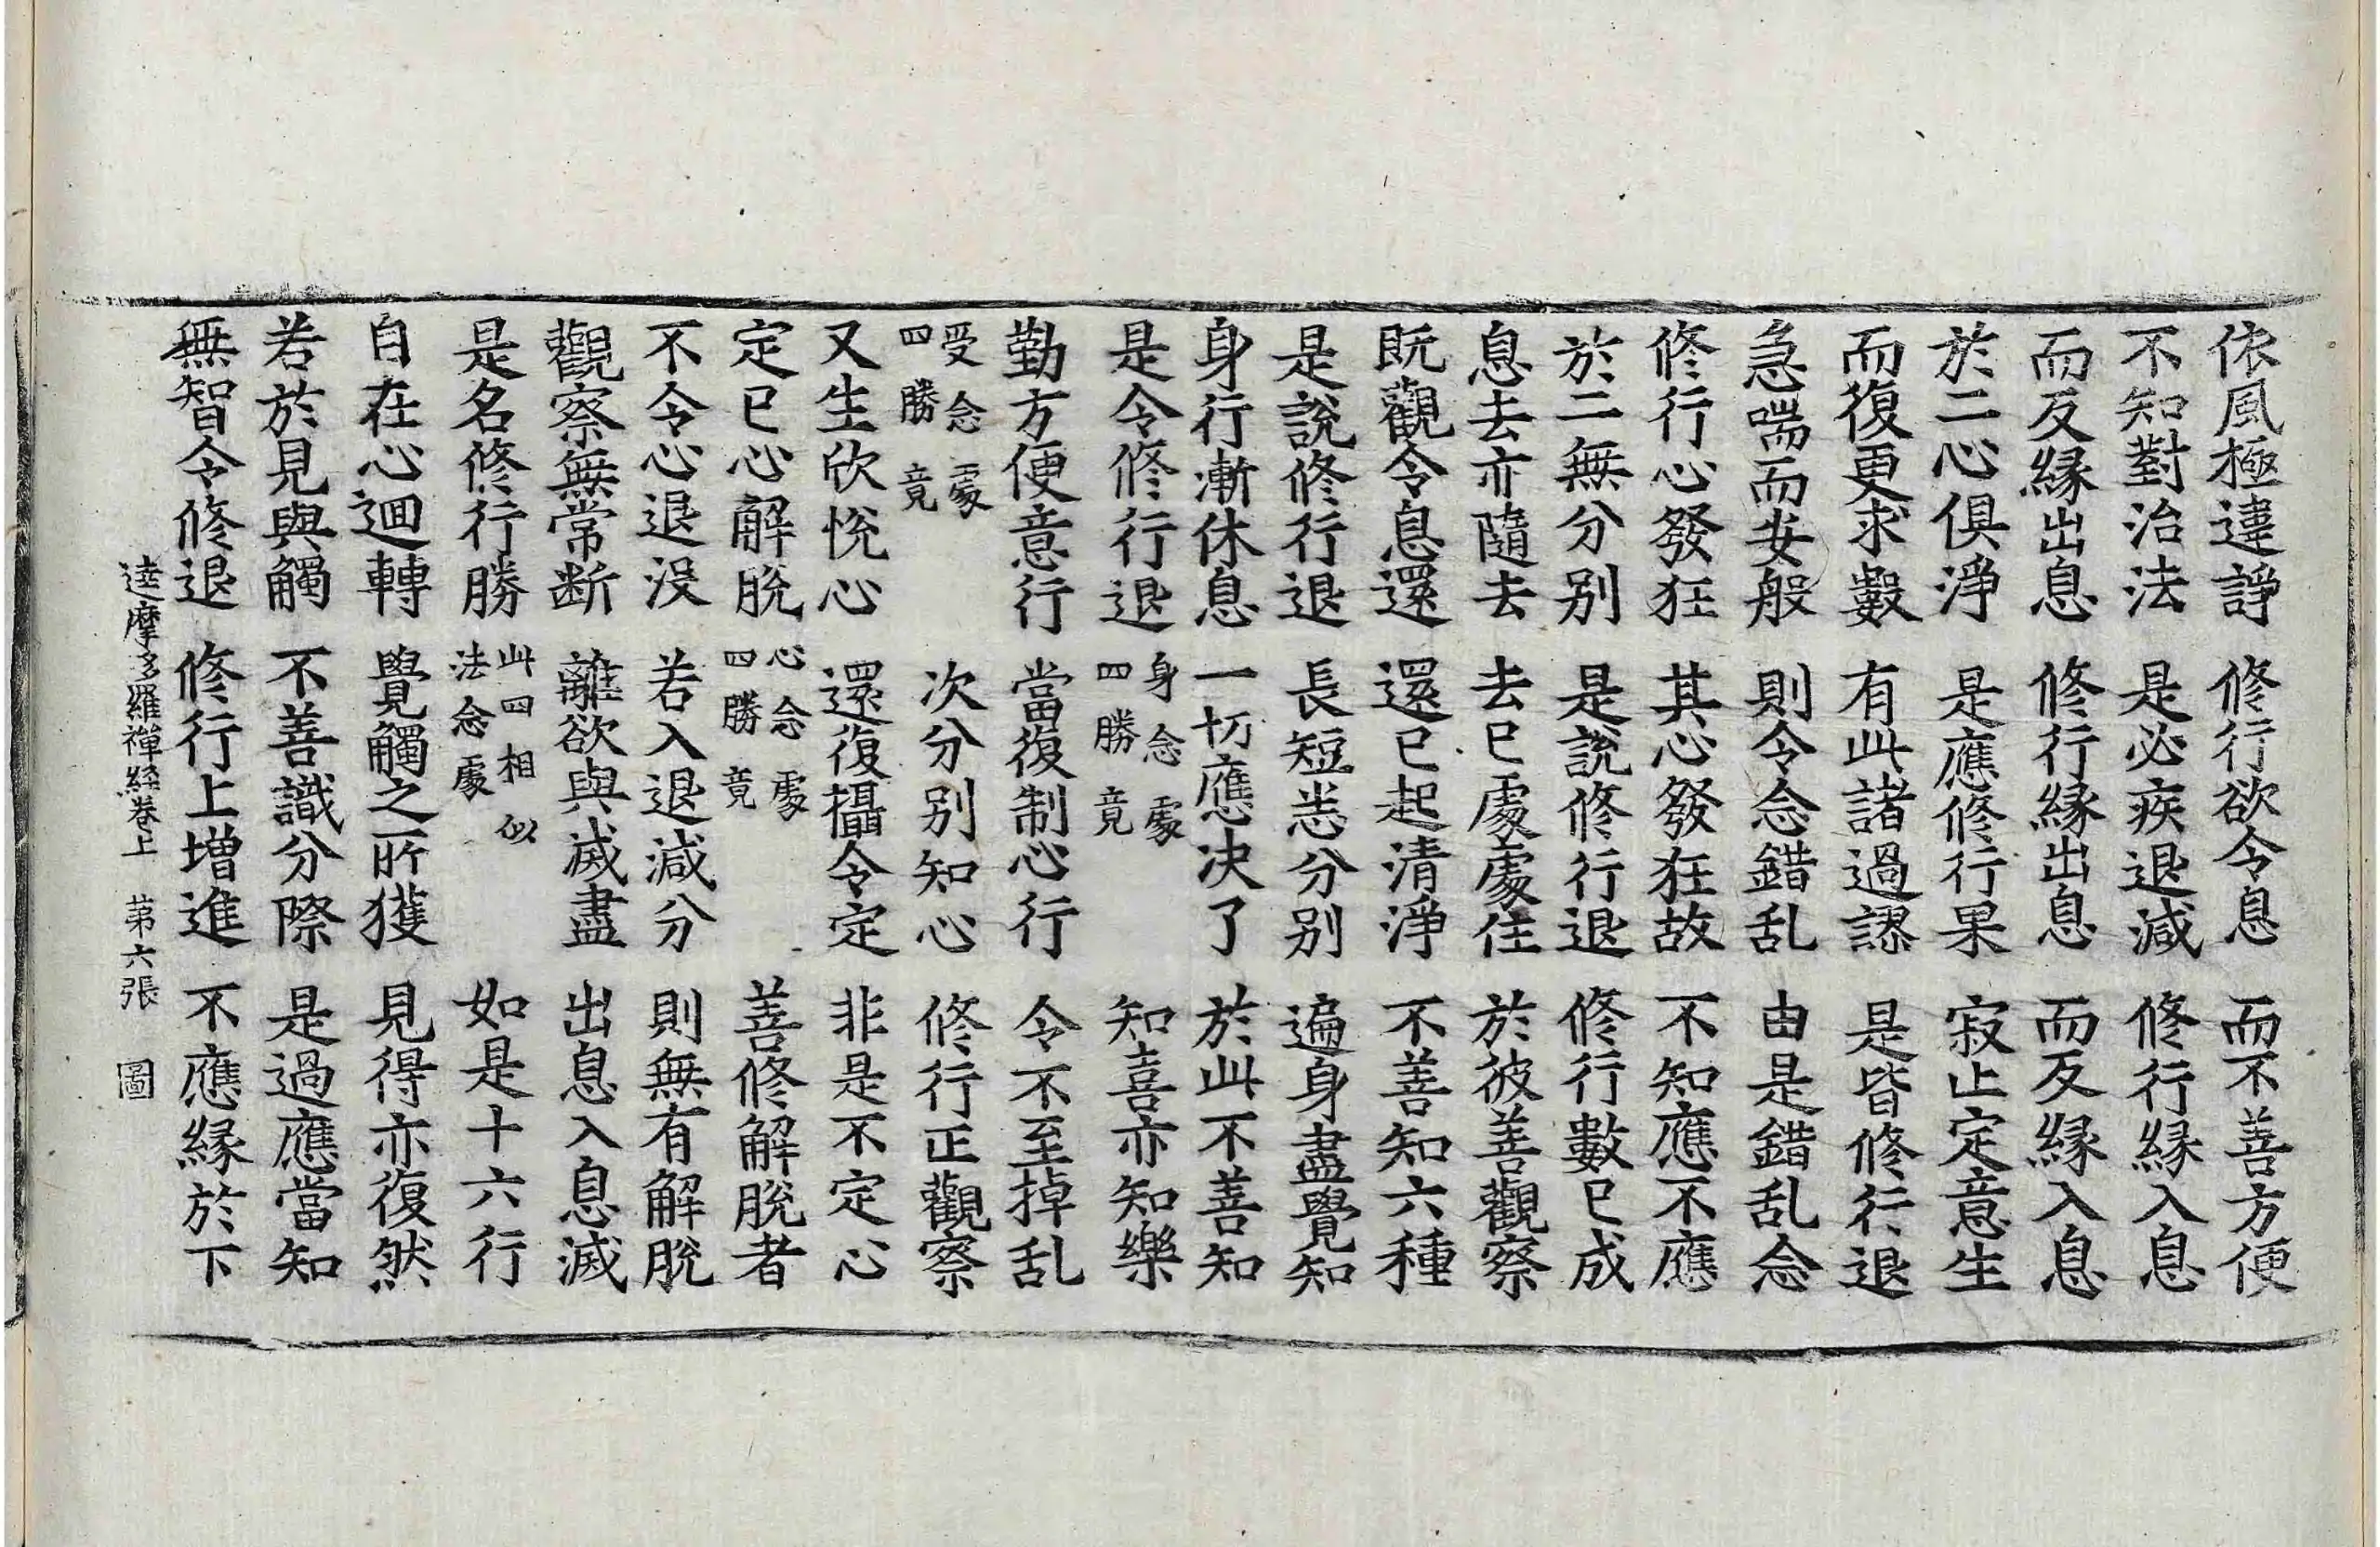 依風極違諍 修行欲令息 而不善方便
不知對治法 是必疾退減 修行縁入息
而反縁出息 修行縁出息 而反縁入息
於二心俱淨 是應修行果 寂止定意生
而復更求數 有此諸過謬 是皆修行退
急喘而安般 則令念錯乱 由是錯乱念
修行心發狂 其心發狂故 不知應不應
於二無分别 是說修行退 修行數已成
息去亦隨去 去已處處住 於彼善觀察
既觀令息還 還已起清淨 不善知六種
是說修行退 長短悉分别 遍身盡覺知
身行漸休息 一切應决了 於此不善知
是令修行退 身念處四勝竟 知喜亦知樂
勤方便意行 當復制心行 令不至掉乱
受念處四勝竟 次分别知心 修行正觀察
又生欣悅心 還復攝令定 非是不定心
定已心解脫 心念處四勝竟 善修解脫者
不令心退没 若入退減分 則無有解脫
觀察無常断 離欲與滅盡 出息入息滅
是名修行勝 此四相似法念處 如是十六行
自在心迴轉 覺觸之所獲 見得亦復然
若於見與觸 不善識分際 是過應當知
無智令修退 修行上增進 不應縁於下
達摩多羅禪経卷上 第六張 圖